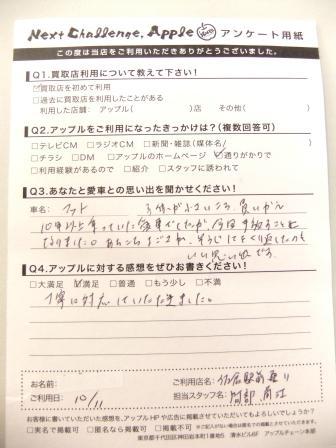 Next Challenge, Apple Hero アンケート用紙
この度は当店をご利用いただきありがとうございました。
Q1.買取店利用について教えて下さい!
☑買取店を初めて利用
□過去に買取店を利用したことがある
利用した店舗: アップル( )店 その他( )
Q2.アップルをご利用になったきっかけは?(複数回答可)
□テレビCM □ラジオCM □新聞・雑誌(媒体名 )
□チラシ □DM □アップルのホームページ ☑通りがかりで
□利用経験があるので □紹介 □スタッフに誘われて
Q3.あなたと愛車との思い出を聞かせください!
車名: フィット
10年以上乗っていた
なりました。
いい思い出です。
Q4.アップルに対する感想をぜひお書きください!
□大満足 ☑満足 □普通 □もう少し □不満
丁寧に対応していただきました。
お名前:
ご利用店名:
ご利用日: 10/11
担当スタッフ名: 阿部
お客様に書いていただいた感想を、アップルHPや広告に掲載させていただいてもよろしいでしょうか?
□実名で掲載可 □匿名なら掲載可 □掲載不可
東京都千代田区神田岩本町1番地5 清水ビル6F アップルチェーン本部